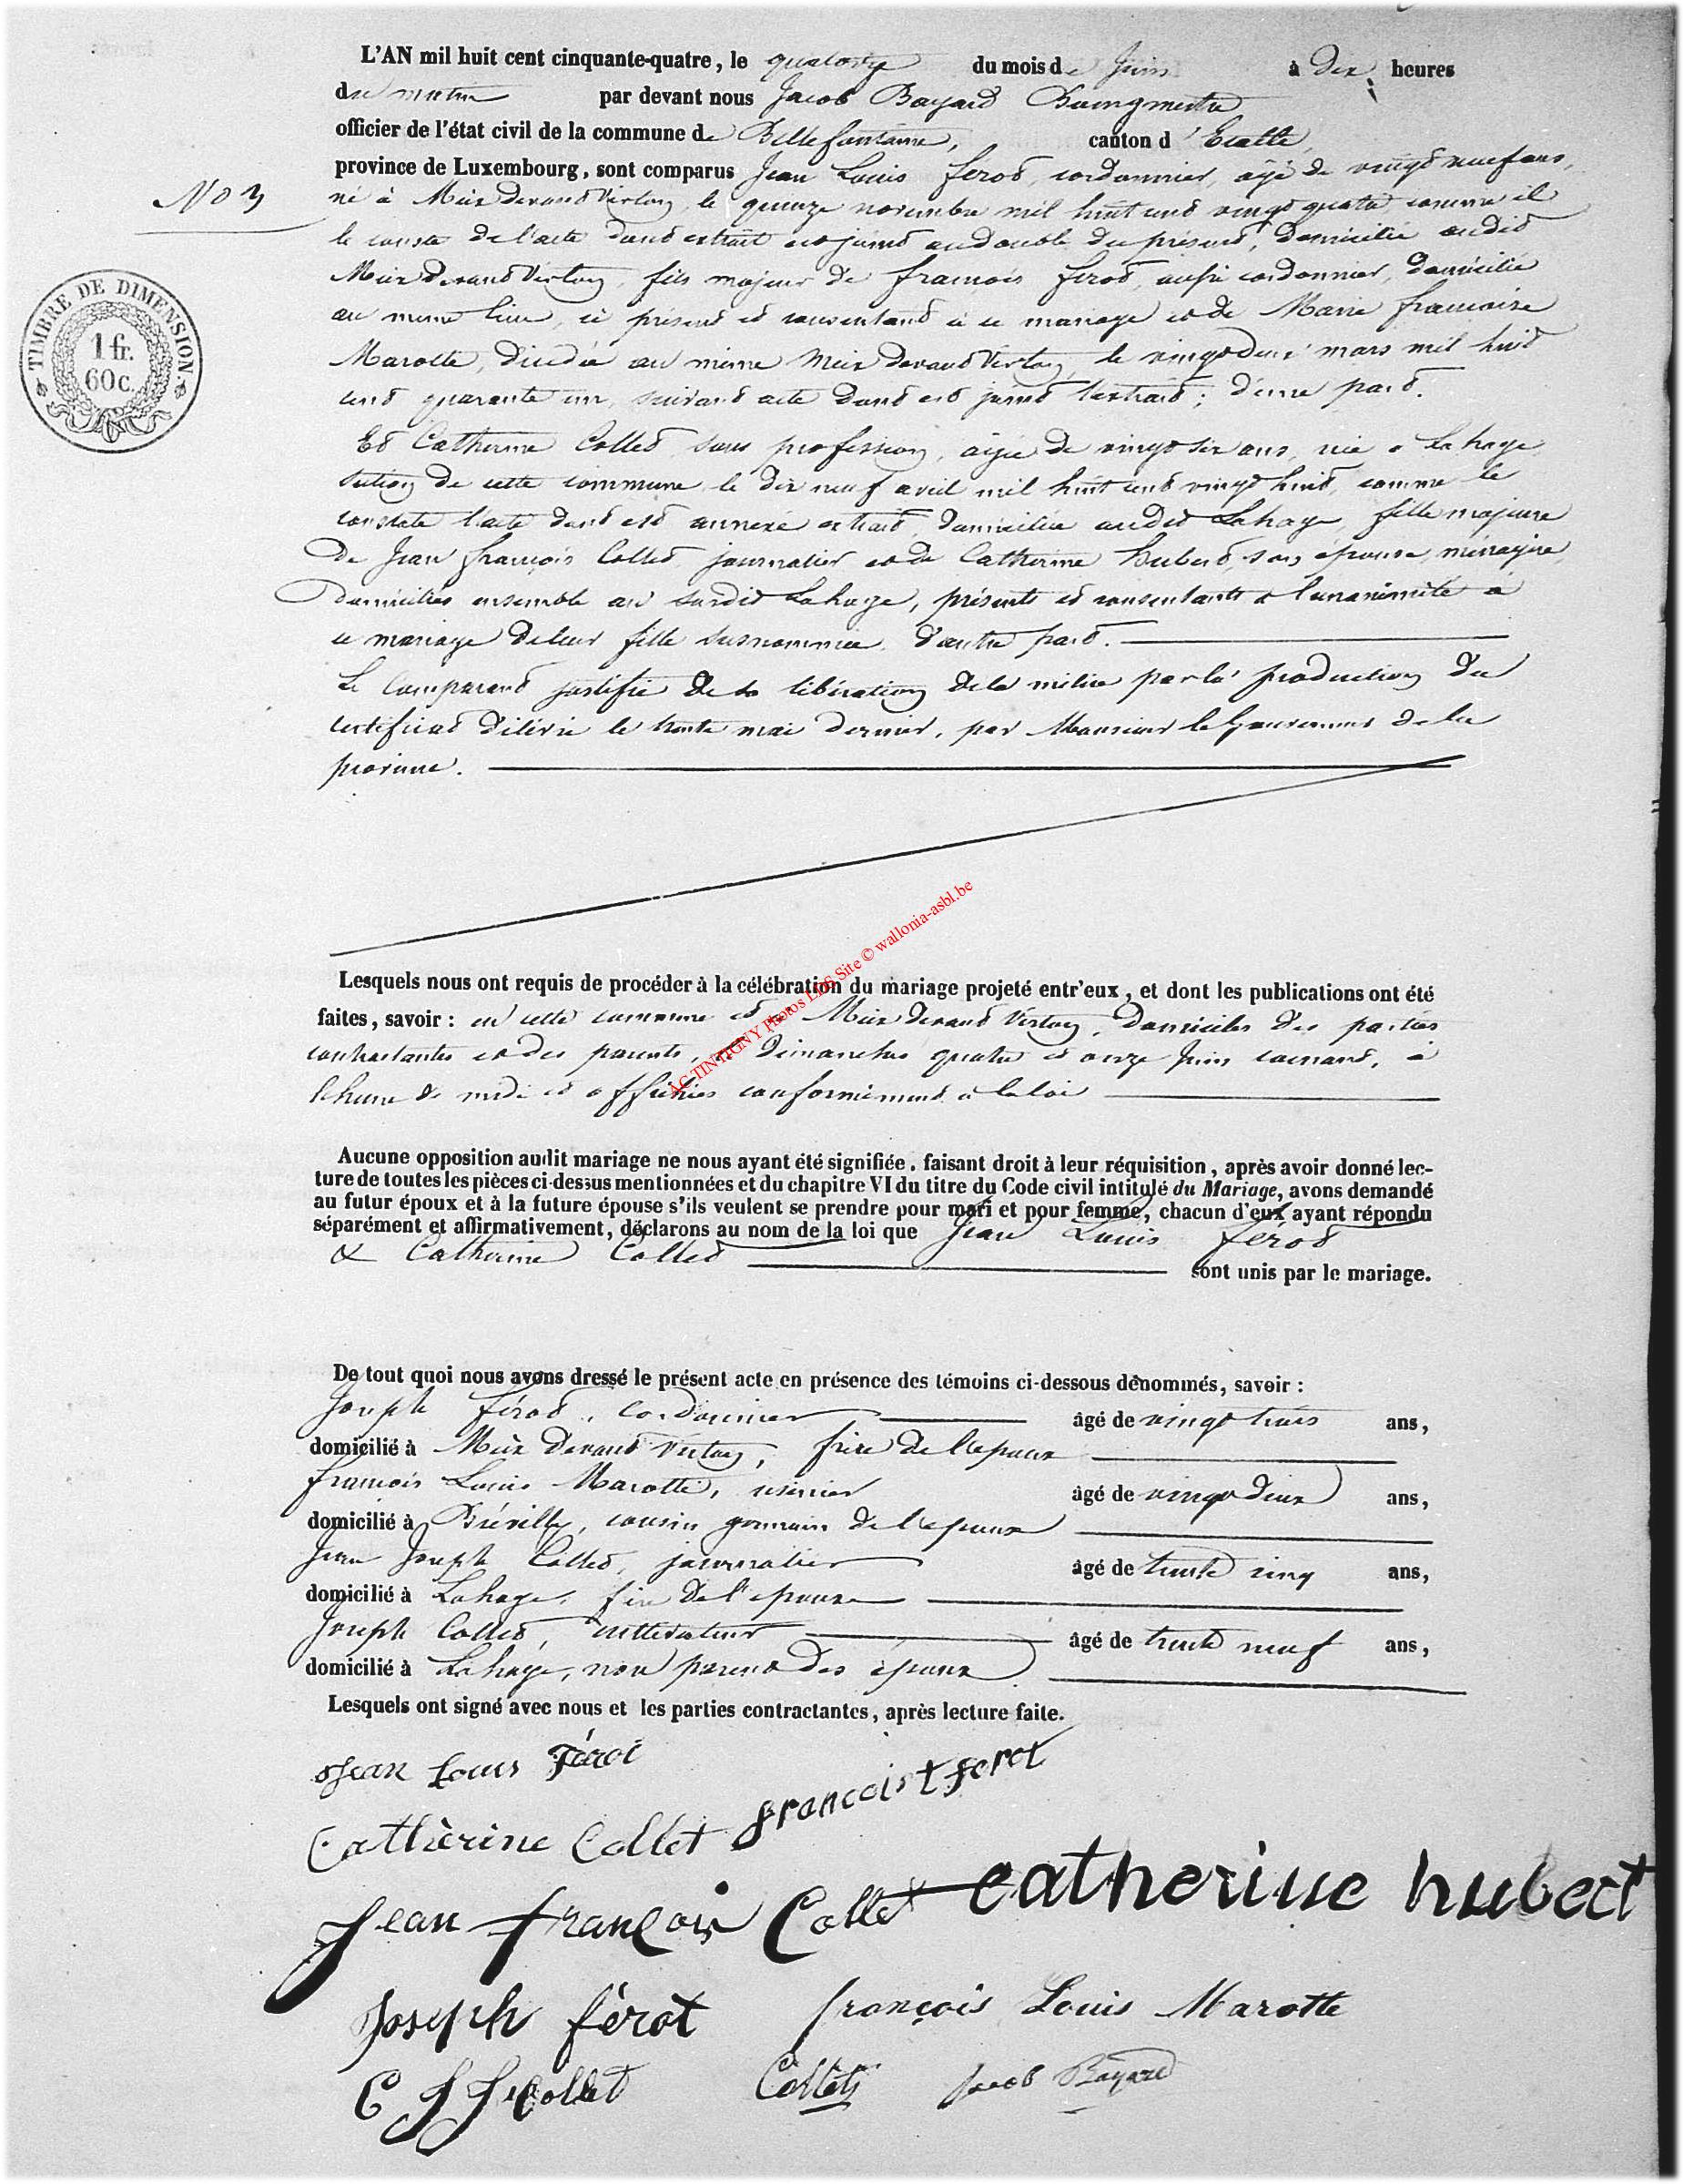 L'AN mil huit cent cinquante-quatre, le quatorze du mois de Juin à dix heures
du matin par devant nous Jacob Bayard Bourgmestre
officier de l'état civil de la commune de Bellefontaine, canton d'Etalle,
province de Luxembourg, sont comparus Jean Louis férot, cordonnier, âgé de vingt neuf ans,
No 3
né à Meix devant Virton, le quinze novembre mil huit cent vingt quatre, comme il
le conste de l'acte dont extrait est joint au double du présent, domicilié audit
Meix devant Virton, fils majeur de françois férot, aussi cordonnier, domicilié
au même lieu, ci présent et consentant à ce mariage et de Marie françoise
Marotte, décédée au même Meix devant Virton, le vingt deux mars mil huit
cent quarante un, suivant acte dont est joint l'extrait ; d'une part.
TIMBRE DE DIMENSION.
1 fr.
60 c.
Et Catherine Collet, sans profession, âgée de vingt six ans, née à Lahage,
section de cette commune, le dix neuf avril mil huit cent vingt huit, comme le
constate l'acte dont est annexé extrait, domiciliée audit Lahage, fille majeure
de Jean françois Collet, journalier et de Catherine hubert, son épouse, ménagère,
domiciliés ensemble au susdit Lahage, présents et consentants à l'unanimité à
ce mariage de leur fille susnommée, d'autre part.
Le comparant justifie de sa libération de la milice par la production du
certificat délivré le trente mai dernier, par Monsieur le Gouverneur de la
province.
AC TINTIGNY Photos LDS Site © wallonia-asbl.be
Lesquels nous ont requis de procéder à la célébration du mariage projeté entr'eux, et dont les publications ont été
faites, savoir : en cette commune et à Meix devant Virton, domiciles des parties
contractantes et des parents, les dimanches quatre et onze Juin courant, à
l'heure de midi et affichées conformément à la loi
Aucune opposition audit mariage ne nous ayant été signifiée, faisant droit à leur réquisition, après avoir donné lec-
ture de toutes les pièces ci-dessus mentionnées et du chapitre VI du titre du Code civil intitulé du Mariage, avons demandé
au futur époux et à la future épouse s'ils veulent se prendre pour mari et pour femme, chacun d'eux ayant répondu
séparément et affirmativement, déclarons au nom de la loi que Jean Louis férot
& Catherine Collet sont unis par le mariage.
De tout quoi nous avons dressé le présent acte en présence des témoins ci-dessous dénommés, savoir :
Joseph férot, cordonnier âgé de vingt trois ans,
domicilié à Meix devant Virton, frère de l'époux
françois Louis Marotte, usinier âgé de vingt deux ans,
domicilié à cousin germain de l'époux
Jean Joseph Collet, journalier âgé de trente cinq ans,
domicilié à Lahage, frère de l'épouse
Joseph Collet, cultivateur âgé de trente neuf ans,
domicilié à Lahage, non parent des époux
Lesquels ont signé avec nous et les parties contractantes, après lecture faite.
Jean Louis Férot
françois t ferot
Catherine Collet
Jean françois Collet catherine hubert
Joseph férot françois Louis Marotte
C J J Collet Collet Jacob Bayard